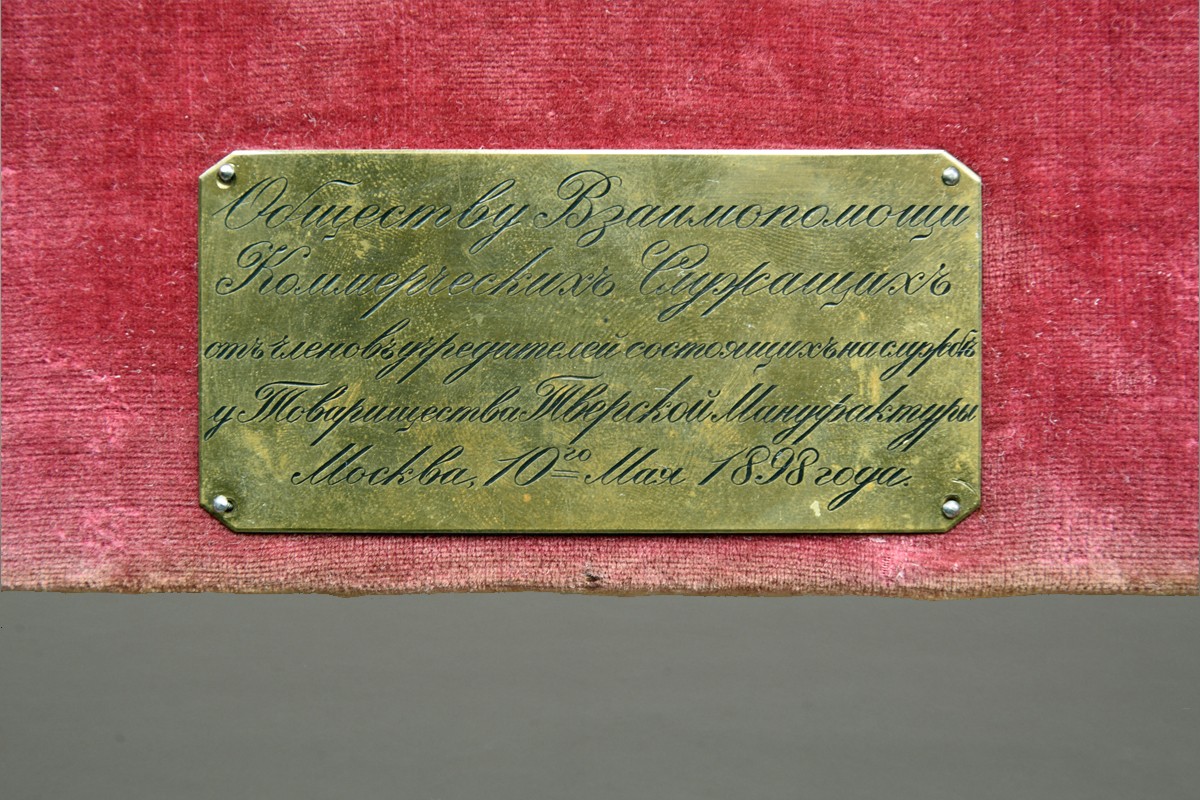 Обществу Взаимопомощи
Коммерческихъ Служащихъ
отъ членовъ учредителей состоящихъ на службѣ
у Товарищества Тверской Мануфактуры
Москва, 10го Мая 1898 года.